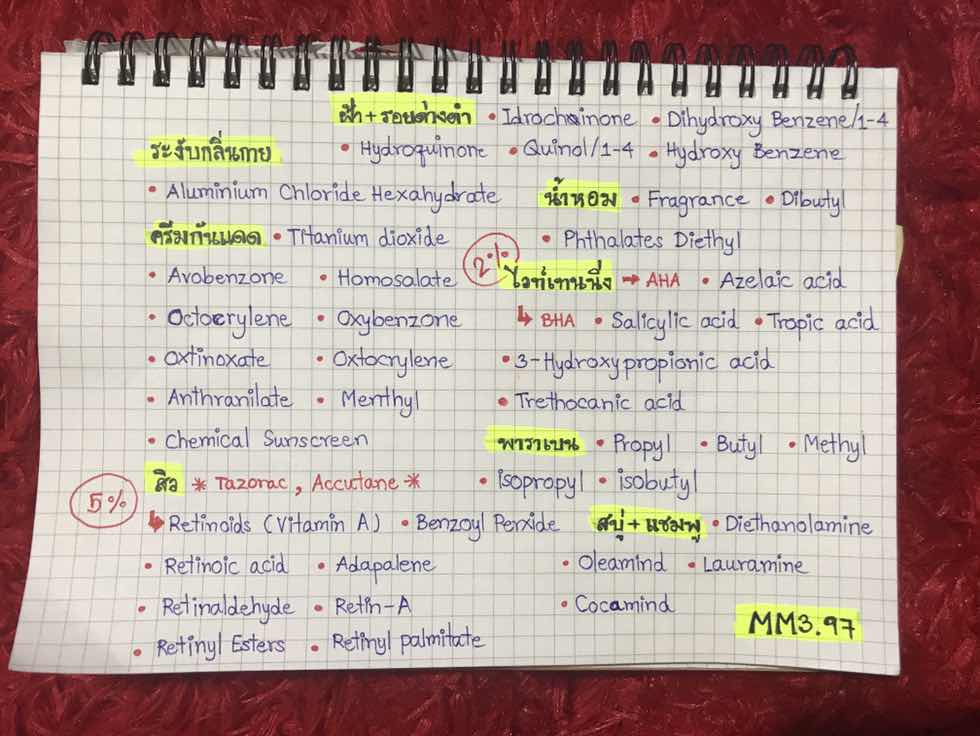 ฝ้า + รอยด่างดำ • Idrochinone • Dihydroxy Benzene/1-4
• Hydroquinone • Quinol/1-4 • Hydroxy Benzene
ระงับกลิ่นกาย
• Aluminium Chloride Hexahydrate
น้ำหอม • Fragrance • Dibutyl
• Phthalates Diethyl
ครีมกันแดด • Titanium dioxide
• Avobenzone • Homosalate
• Octocrylene • Oxybenzone
• Oxtinoxate • Oxtocrylene
• Anthranilate • Menthyl
• Chemical Sunscreen
2%
ไวท์เทนนิ่ง → AHA • Azelaic acid
↳ BHA • Salicylic acid • Tropic acid
• 3-Hydroxypropionic acid
• Trethocanic acid
พาราเบน • Propyl • Butyl • Methyl
• isopropyl • isobutyl
5%
สิว * Tazorac, Accutane *
↳ Retinoids (Vitamin A) • Benzoyl Perxide
• Retinoic acid • Adapalene
• Retinaldehyde • Retin-A
• Retinyl Esters • Retinyl palmitate
สบู่ + แชมพู • Diethanolamine
• Oleamind • Lauramine
• Cocamind
MM3.97